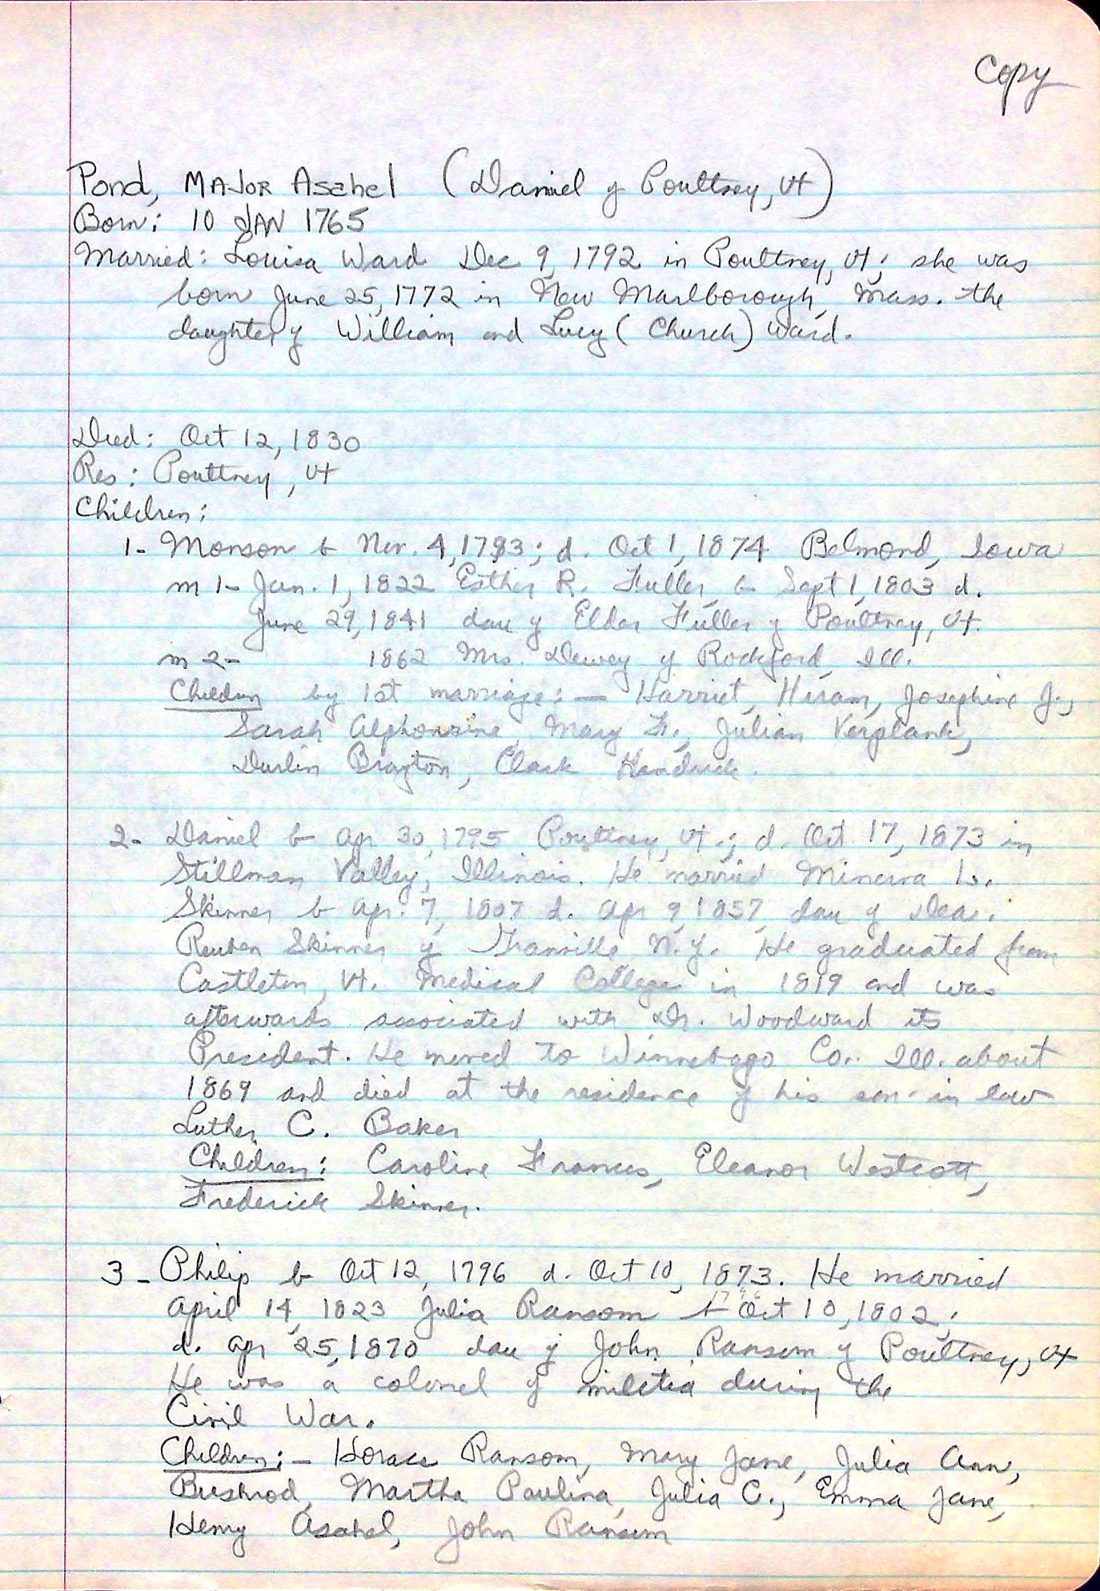 Copy
Pond, MAJOR Asahel (Daniel of Poultney, Vt)
Born: 10 JAN 1765
Married: Louisa Ward Dec 9, 1792 in Poultney, Vt; she was
born June 25, 1772 in New Marlborough, Mass. the
daughter of William and Lucy (Church) Ward.
Died: Oct 12, 1830
Res: Poultney, Vt
Children:
1- Monson b Nov. 4, 1793; d. Oct 1, 1874 Belmond, Iowa
m 1- Jan. 1, 1822 Esther R. Fuller, b Sept 1, 1803 d.
June 29, 1841 dau of Elder Fuller of Poultney, Vt.
m 2- 1862 Mrs. Dewey of Rockford, Ill.
Children by 1st marriage:- Harriet, Hiram, Josephine J.,
Sarah Alphonsine, Mary F., Julian Verplank,
Durlin Brayton, Clark Hendrick.
2- Daniel b Apr 30, 1795 Poultney, Vt.; d. Oct 17, 1873 in
Stillman Valley, Illinois. He married Minerva L.
Skinner b Apr. 7, 1807 d. Apr 9, 1857, dau of Dea.
Reuben Skinner of Granville N.Y. He graduated from
Castleton, Vt. Medical College in 1819 and was
afterwards associated with Dr. Woodward its
President. He moved to Winnebago Co. Ill. about
1869 and died at the residence of his son-in law
Luther C. Baker
Children: Caroline Frances, Eleanor Westcott,
Frederick Skinner.
3- Philip b Oct 12, 1796 d. Oct 10, 1873. He married
April 14, 1823 Julia Ransom b Oct 10, 1802;
d. Apr 25, 1870 dau of John Ransom of Poultney, Vt
He was a colonel of militia during the
Civil War.
Children:- Horace Ransom, Mary Jane, Julia Ann,
Bushrod, Martha Paulina, Julia C., Emma Jane,
Henry Asahel, John Ransom